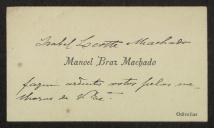 Isabel Lcotte Machado
Manoel Braz Machado
fazem ardentes votos pelas me-
lhoras de V. Exª.
Odivellas